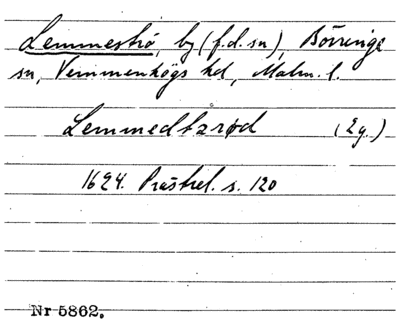 Lemmeströ, by (f.d. sn), Börringe
sn, Vemmenhögs hd, Malm. l.
Lemmedtzrød (2g.)
1624. Prästrel. s. 120
Nr 5862.